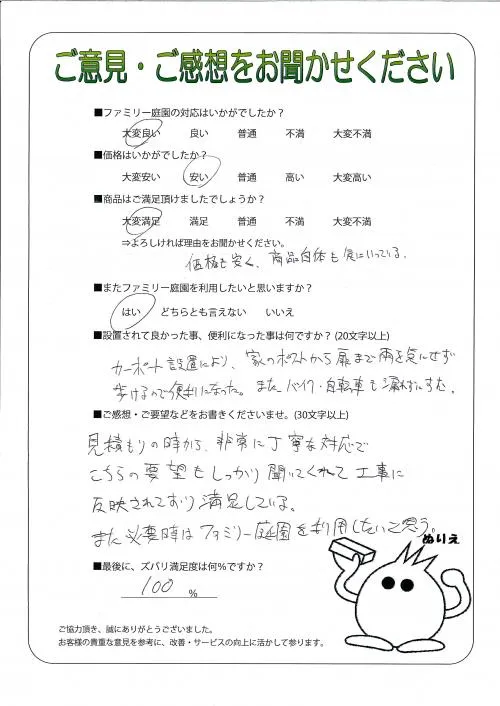 ご意見・ご感想をお聞かせください
■ファミリー庭園の対応はいかがでしたか？
大変良い 良い 普通 不満 大変不満
■価格はいかがでしたか？
大変安い 安い 普通 高い 大変高い
■商品はご満足頂けましたでしょうか？
大変満足 満足 普通 不満 大変不満
⇒よろしければ理由をお聞かせください。
価格も安く、商品自体も気にいっている。
■またファミリー庭園を利用したいと思いますか？
はい どちらとも言えない いいえ
■設置されて良かった事、便利になった事は何ですか？(20文字以上)
カーポート設置により、家のポストから扉まで雨を気にせず
歩けるので便利になった。またバイク・自転車も濡れずにすむ。
■ご感想・ご要望などをお書きくださいませ。(30文字以上)
見積もりの時から、非常に丁寧な対応で
こちらの要望もしっかり聞いてくれて工事に
反映されており満足している。
また必要時はファミリー庭園を利用したいと思う。
ぬりえ
■最後に、ズバリ満足度は何％ですか？
100 ％
ご協力頂き、誠にありがとうございました。
お客様の貴重な意見を参考に、改善・サービスの向上に活かして参ります。